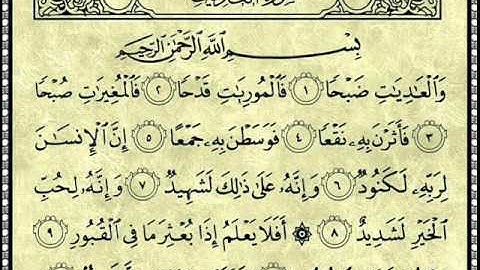 سُورَةُ العَادِيَاتِ
بِسْمِ اللَّهِ الرَّحْمَٰنِ الرَّحِيمِ
وَالْعَادِيَاتِ ضَبْحًا ١ فَالْمُورِيَاتِ قَدْحًا ٢ فَالْمُغِيرَاتِ صُبْحًا
٣ فَأَثَرْنَ بِهِ نَقْعًا ٤ فَوَسَطْنَ بِهِ جَمْعًا ٥ إِنَّ الْإِنسَانَ
لِرَبِّهِ لَكَنُودٌ ٦ وَإِنَّهُ عَلَىٰ ذَٰلِكَ لَشَهِيدٌ ٧ وَإِنَّهُ لِحُبِّ
الْخَيْرِ لَشَدِيدٌ ٨ ۞ أَفَلَا يَعْلَمُ إِذَا بُعْثِرَ مَا فِي الْقُبُورِ ٩